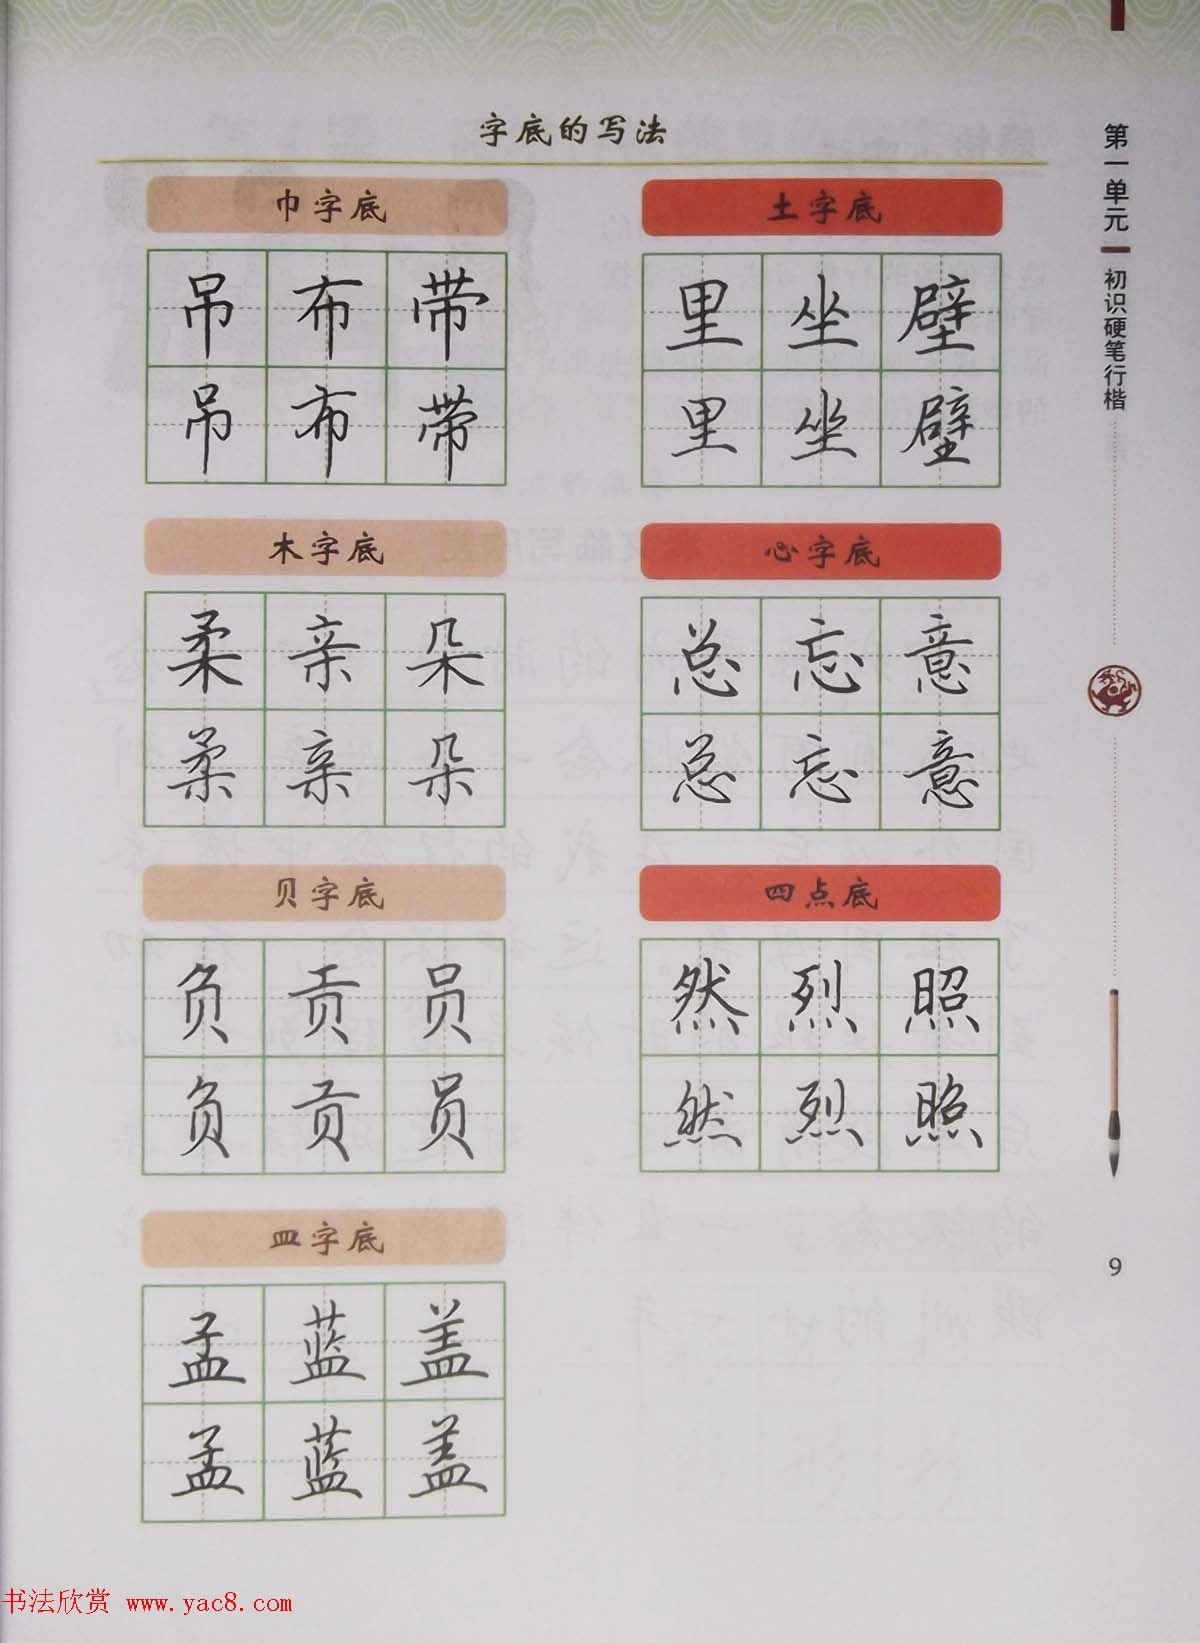 字底的写法
巾字底
吊 布 带
吊 布 带
土字底
里 坐 壁
里 坐 壁
木字底
柔 亲 朵
柔 亲 朵
心字底
总 忘 意
总 忘 意
贝字底
负 贡 员
负 贡 员
四点底
然 烈 照
然 烈 照
皿字底
孟 蓝 盖
孟 蓝 盖
第一单元
初识硬笔行楷
9
书法欣赏 www.yac8.com